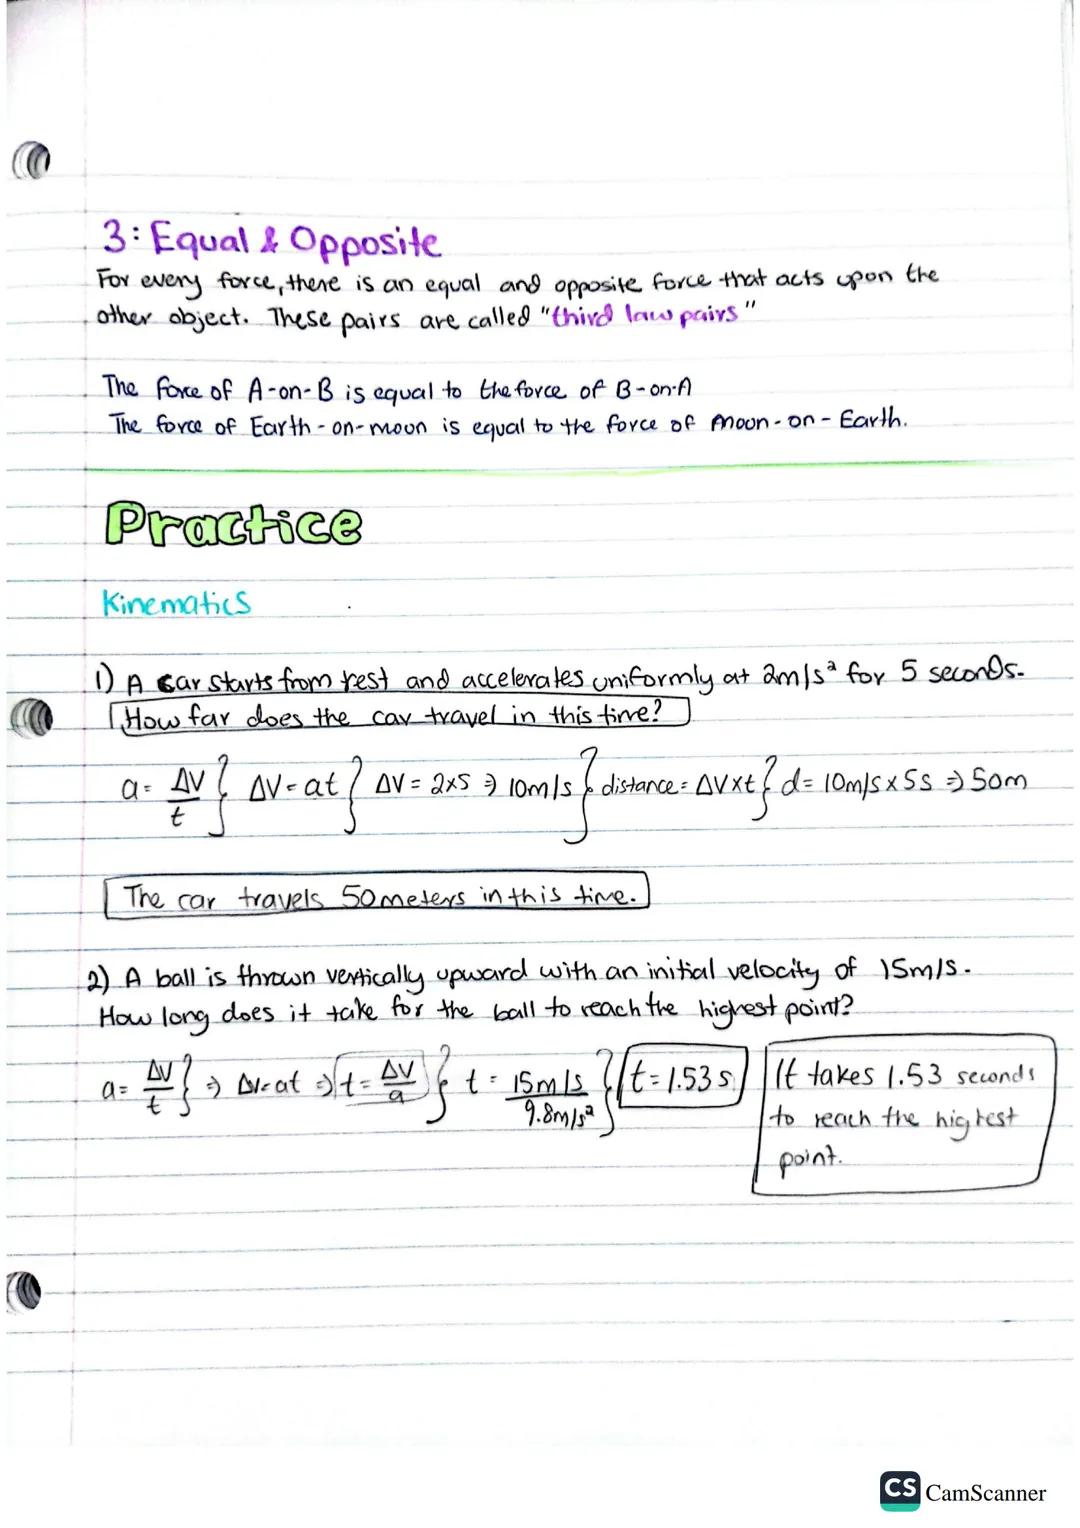 3: Equal & Opposite
For every force, there is an equal and opposite force that acts upon the
other object. These pairs are called "third law pairs"
The force of A-on-B is equal to the force of B-on-A
The force of Earth-on-moon is equal to the force of moon-on-Earth.
Practice
Kinematics
1) A car starts from rest and accelerates uniformly at 2m/s² for 5 seconds.
How far does the car travel in this time?
a = ΔV/t } ΔV = at } ΔV = 2x5 ⇒ 10m/s } distance = ΔVxt } d = 10m/s x 5s ⇒ 50m
The car travels 50 meters in this time.
2) A ball is thrown vertically upward with an initial velocity of 15m/s.
How long does it take for the ball to reach the highest point?
a = ΔV/t } ⇒ ΔV=at ⇒ t = ΔV/a } t = 15m/s / 9.8m/s² } t = 1.53 s
It takes 1.53 seconds
to reach the highest
point.
CS CamScanner